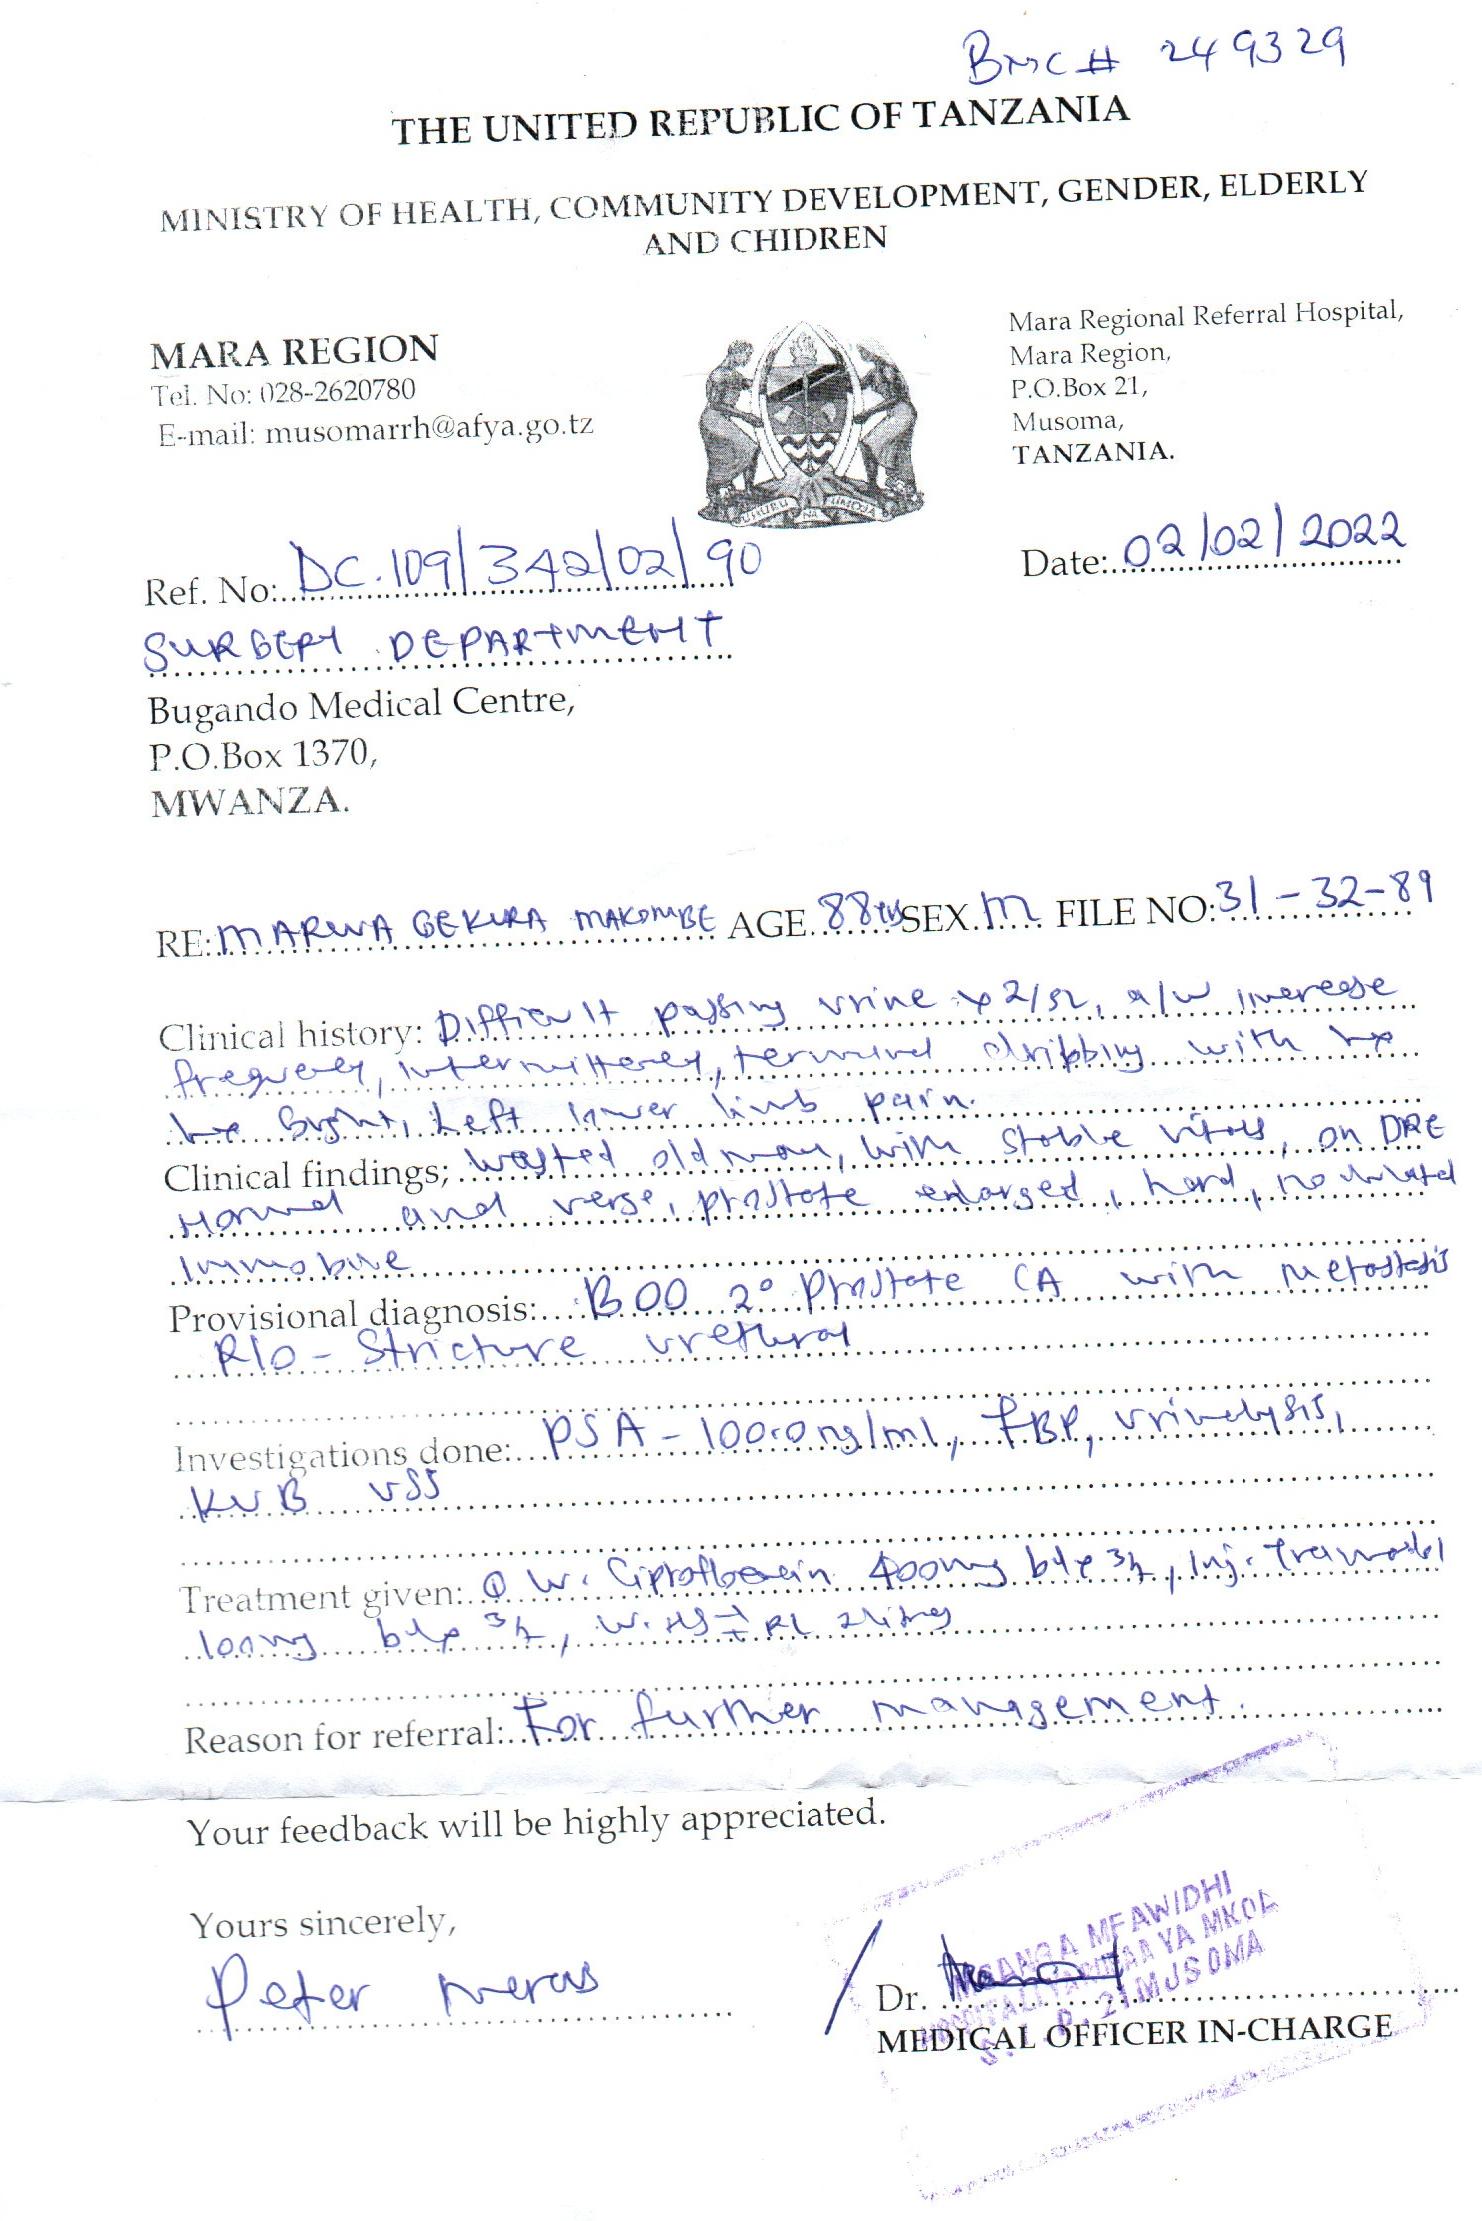 BMC # 249329
THE UNITED REPUBLIC OF TANZANIA
MINISTRY OF HEALTH, COMMUNITY DEVELOPMENT, GENDER, ELDERLY
AND CHIDREN
MARA REGION
Tel. No: 028-2620780
E-mail: musomarrh@afya.go.tz
UHURU NA UMOJA
Mara Regional Referral Hospital,
Mara Region,
P.O.Box 21,
Musoma,
TANZANIA.
Ref. No: DC.109/342/02/90
Date: 02/02/2022
SURGERY DEPARTMENT
Bugando Medical Centre,
P.O.Box 1370,
MWANZA.
RE: MARWA GEKURA MAKOMBE AGE 88yrs SEX. M FILE NO: 31-32-89
Clinical history: Difficult passing urine x 2/52, a/w increase
frequency, intermittency, terminal dribbing with hx
Left lower limb pain.
Clinical findings; wasted old man, with stable vitals, on DRE
Normal anal verge, prostate enlarged, hard, nodulated
immobile
Provisional diagnosis: BOO 2° Prostate CA with metastasis
R/o - Stricture urethral
Investigations done: PSA - 100.0ng/ml, FBP, urinalysis,
KUB USS
Treatment given: Ciprofloxacin 400mg bd x 3/7, Inj. Tramadol
100mg bd x 3/7, RL 2litres
Reason for referral: For further management.
Your feedback will be highly appreciated.
Yours sincerely,
Peter
Dr.
MEDICAL OFFICER IN-CHARGE
MGANGA MFAWIDHI
HOSPITALI YA RUFAA YA MKOA
S.L.P. 21 MUSOMA